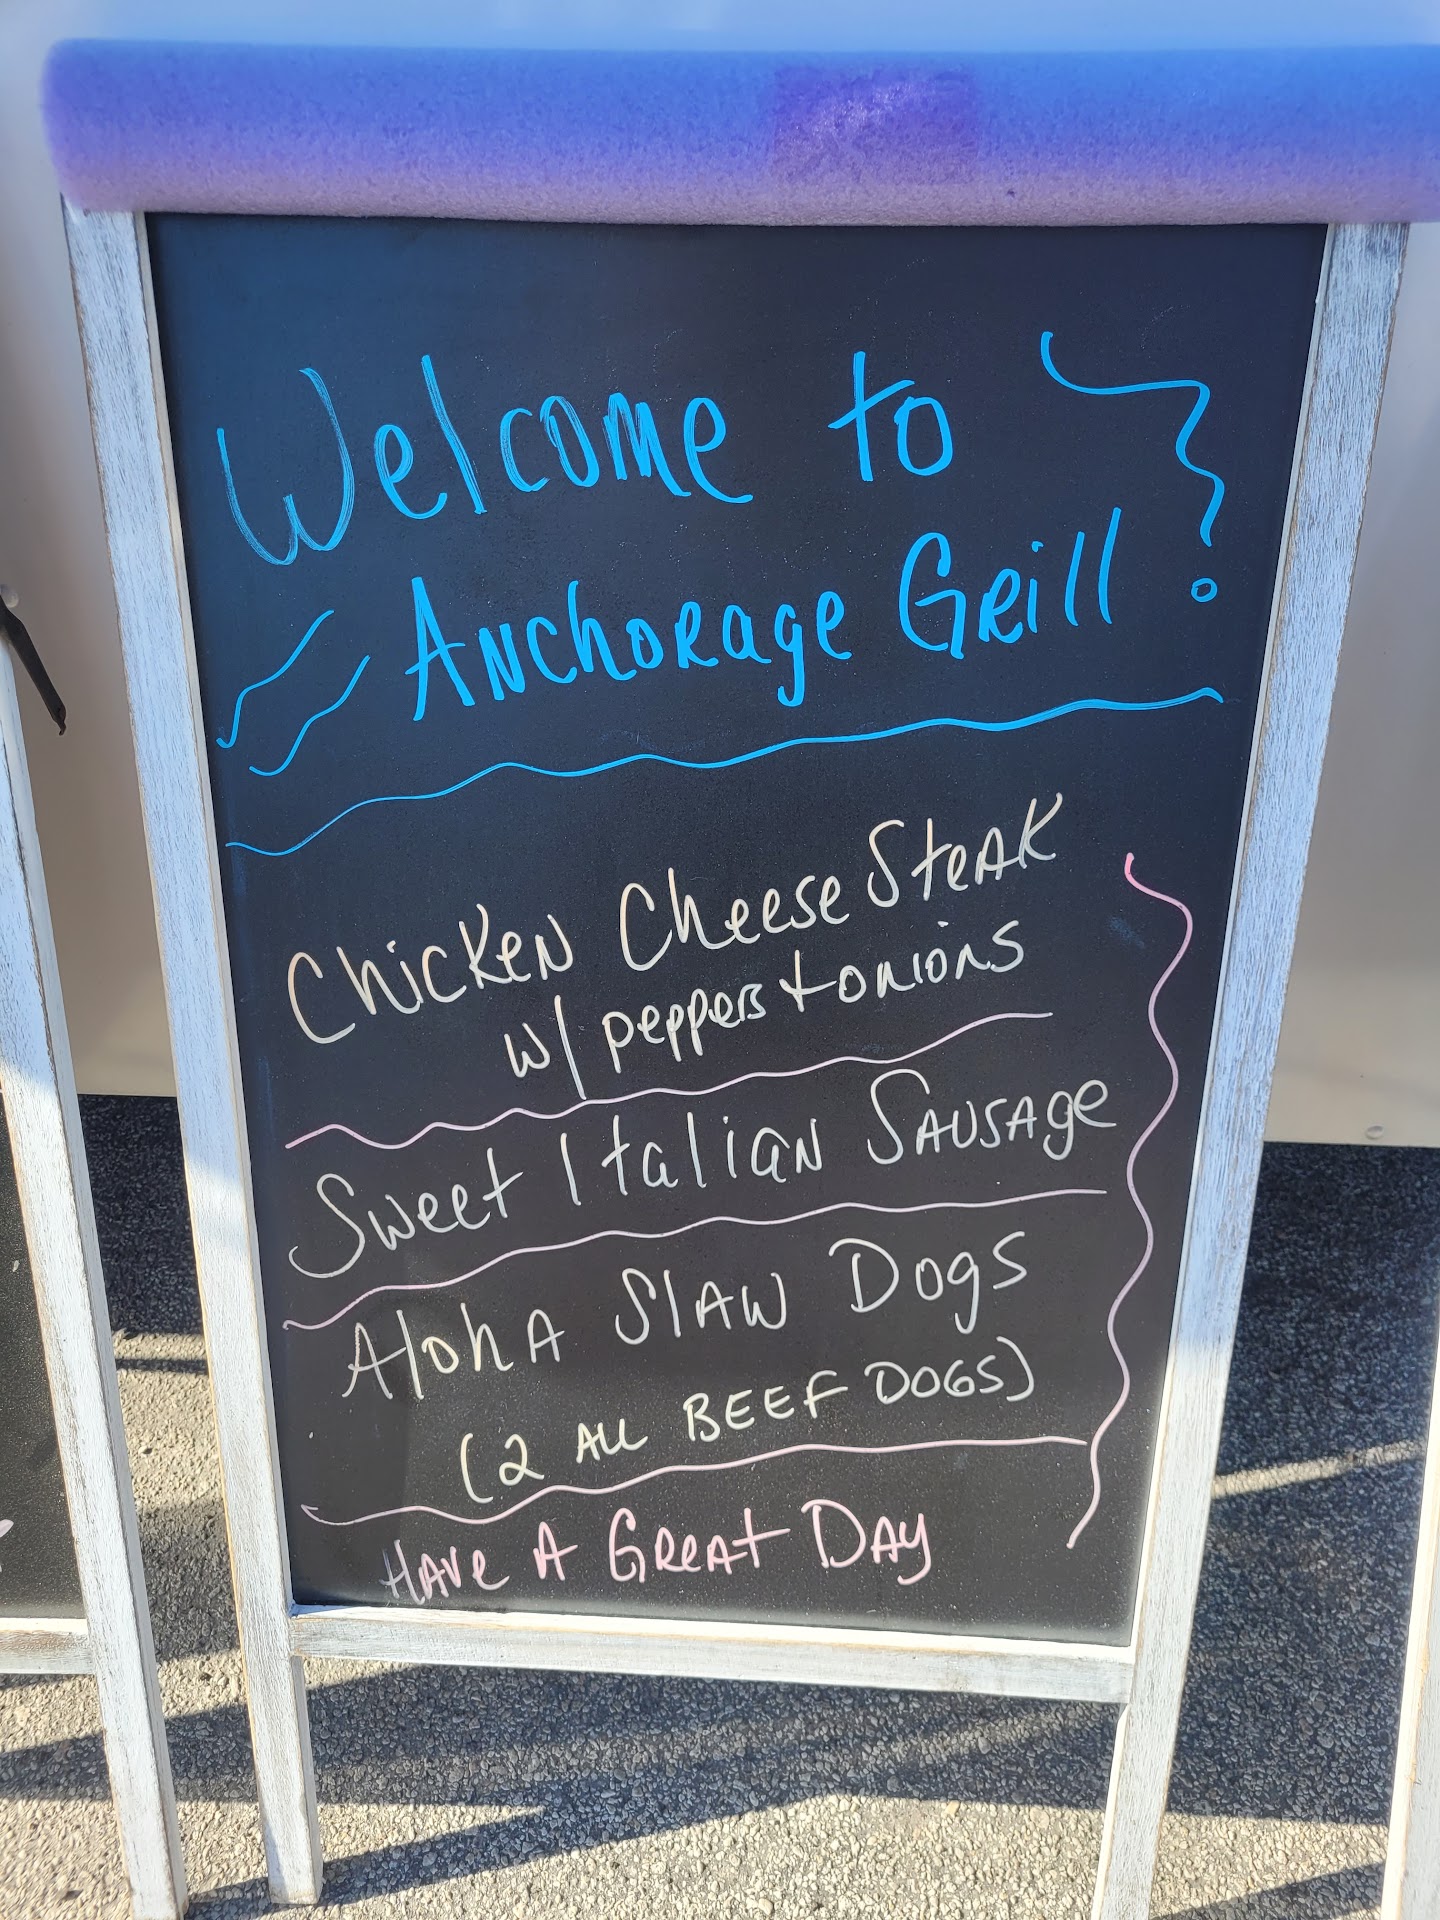 Welcome to
Anchorage Grill
Chicken Cheese Steak
w/ peppers + onions
Sweet Italian Sausage
Aloha Slaw Dogs
(2 ALL BEEF DOGS)
Have A Great Day